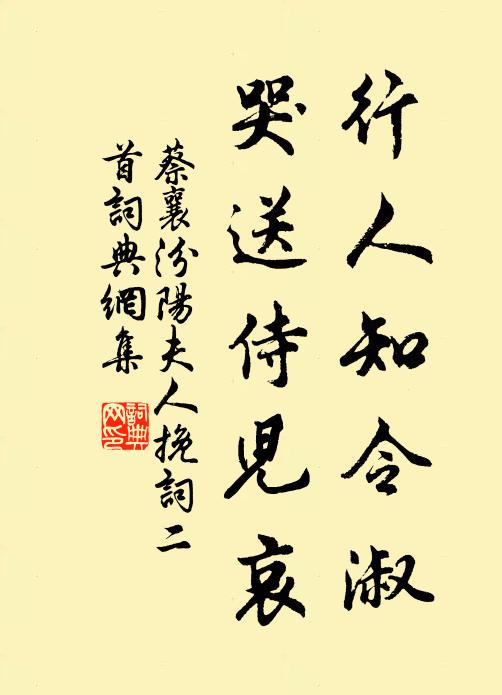 行人知令淑
哭送侍児哀
蔡襄汾陽夫人挽詞二
首詞典網集
詞典
网印